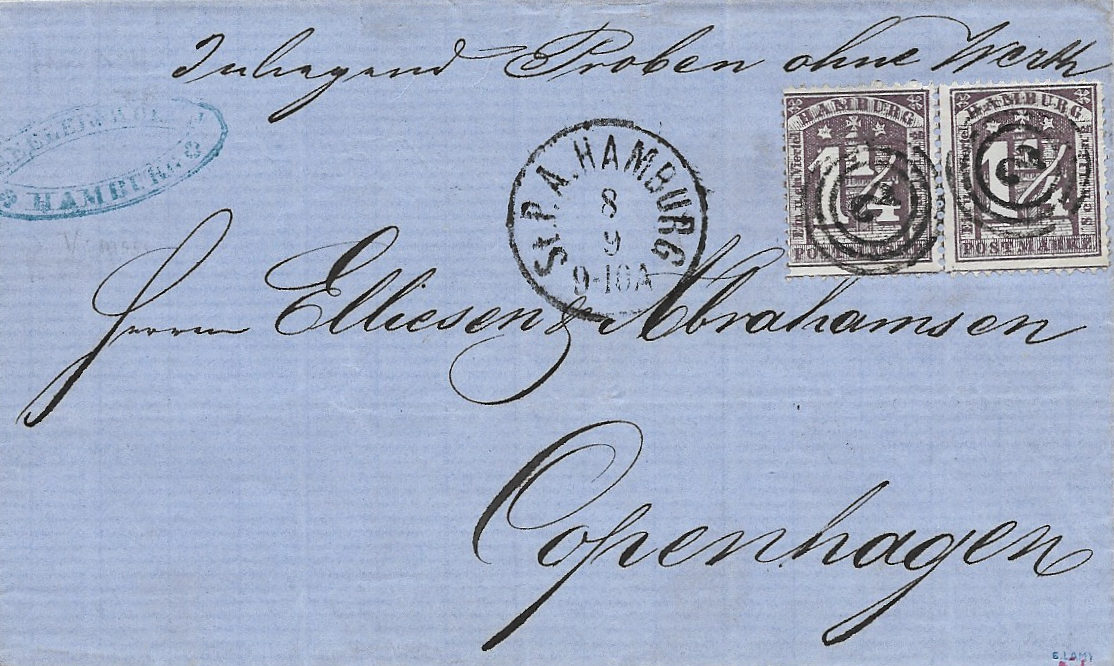 Inliegend Proben ohne Werth
HAMBURG
1 1/4
POSTMARKE
HAMBURG
1 1/4
POSTMARKE
HAMBURG
St.P.A.HAMBURG
8
9
9-10A
Herrn Elliesen & Abrahamsen
Copenhagen
E.LAMY